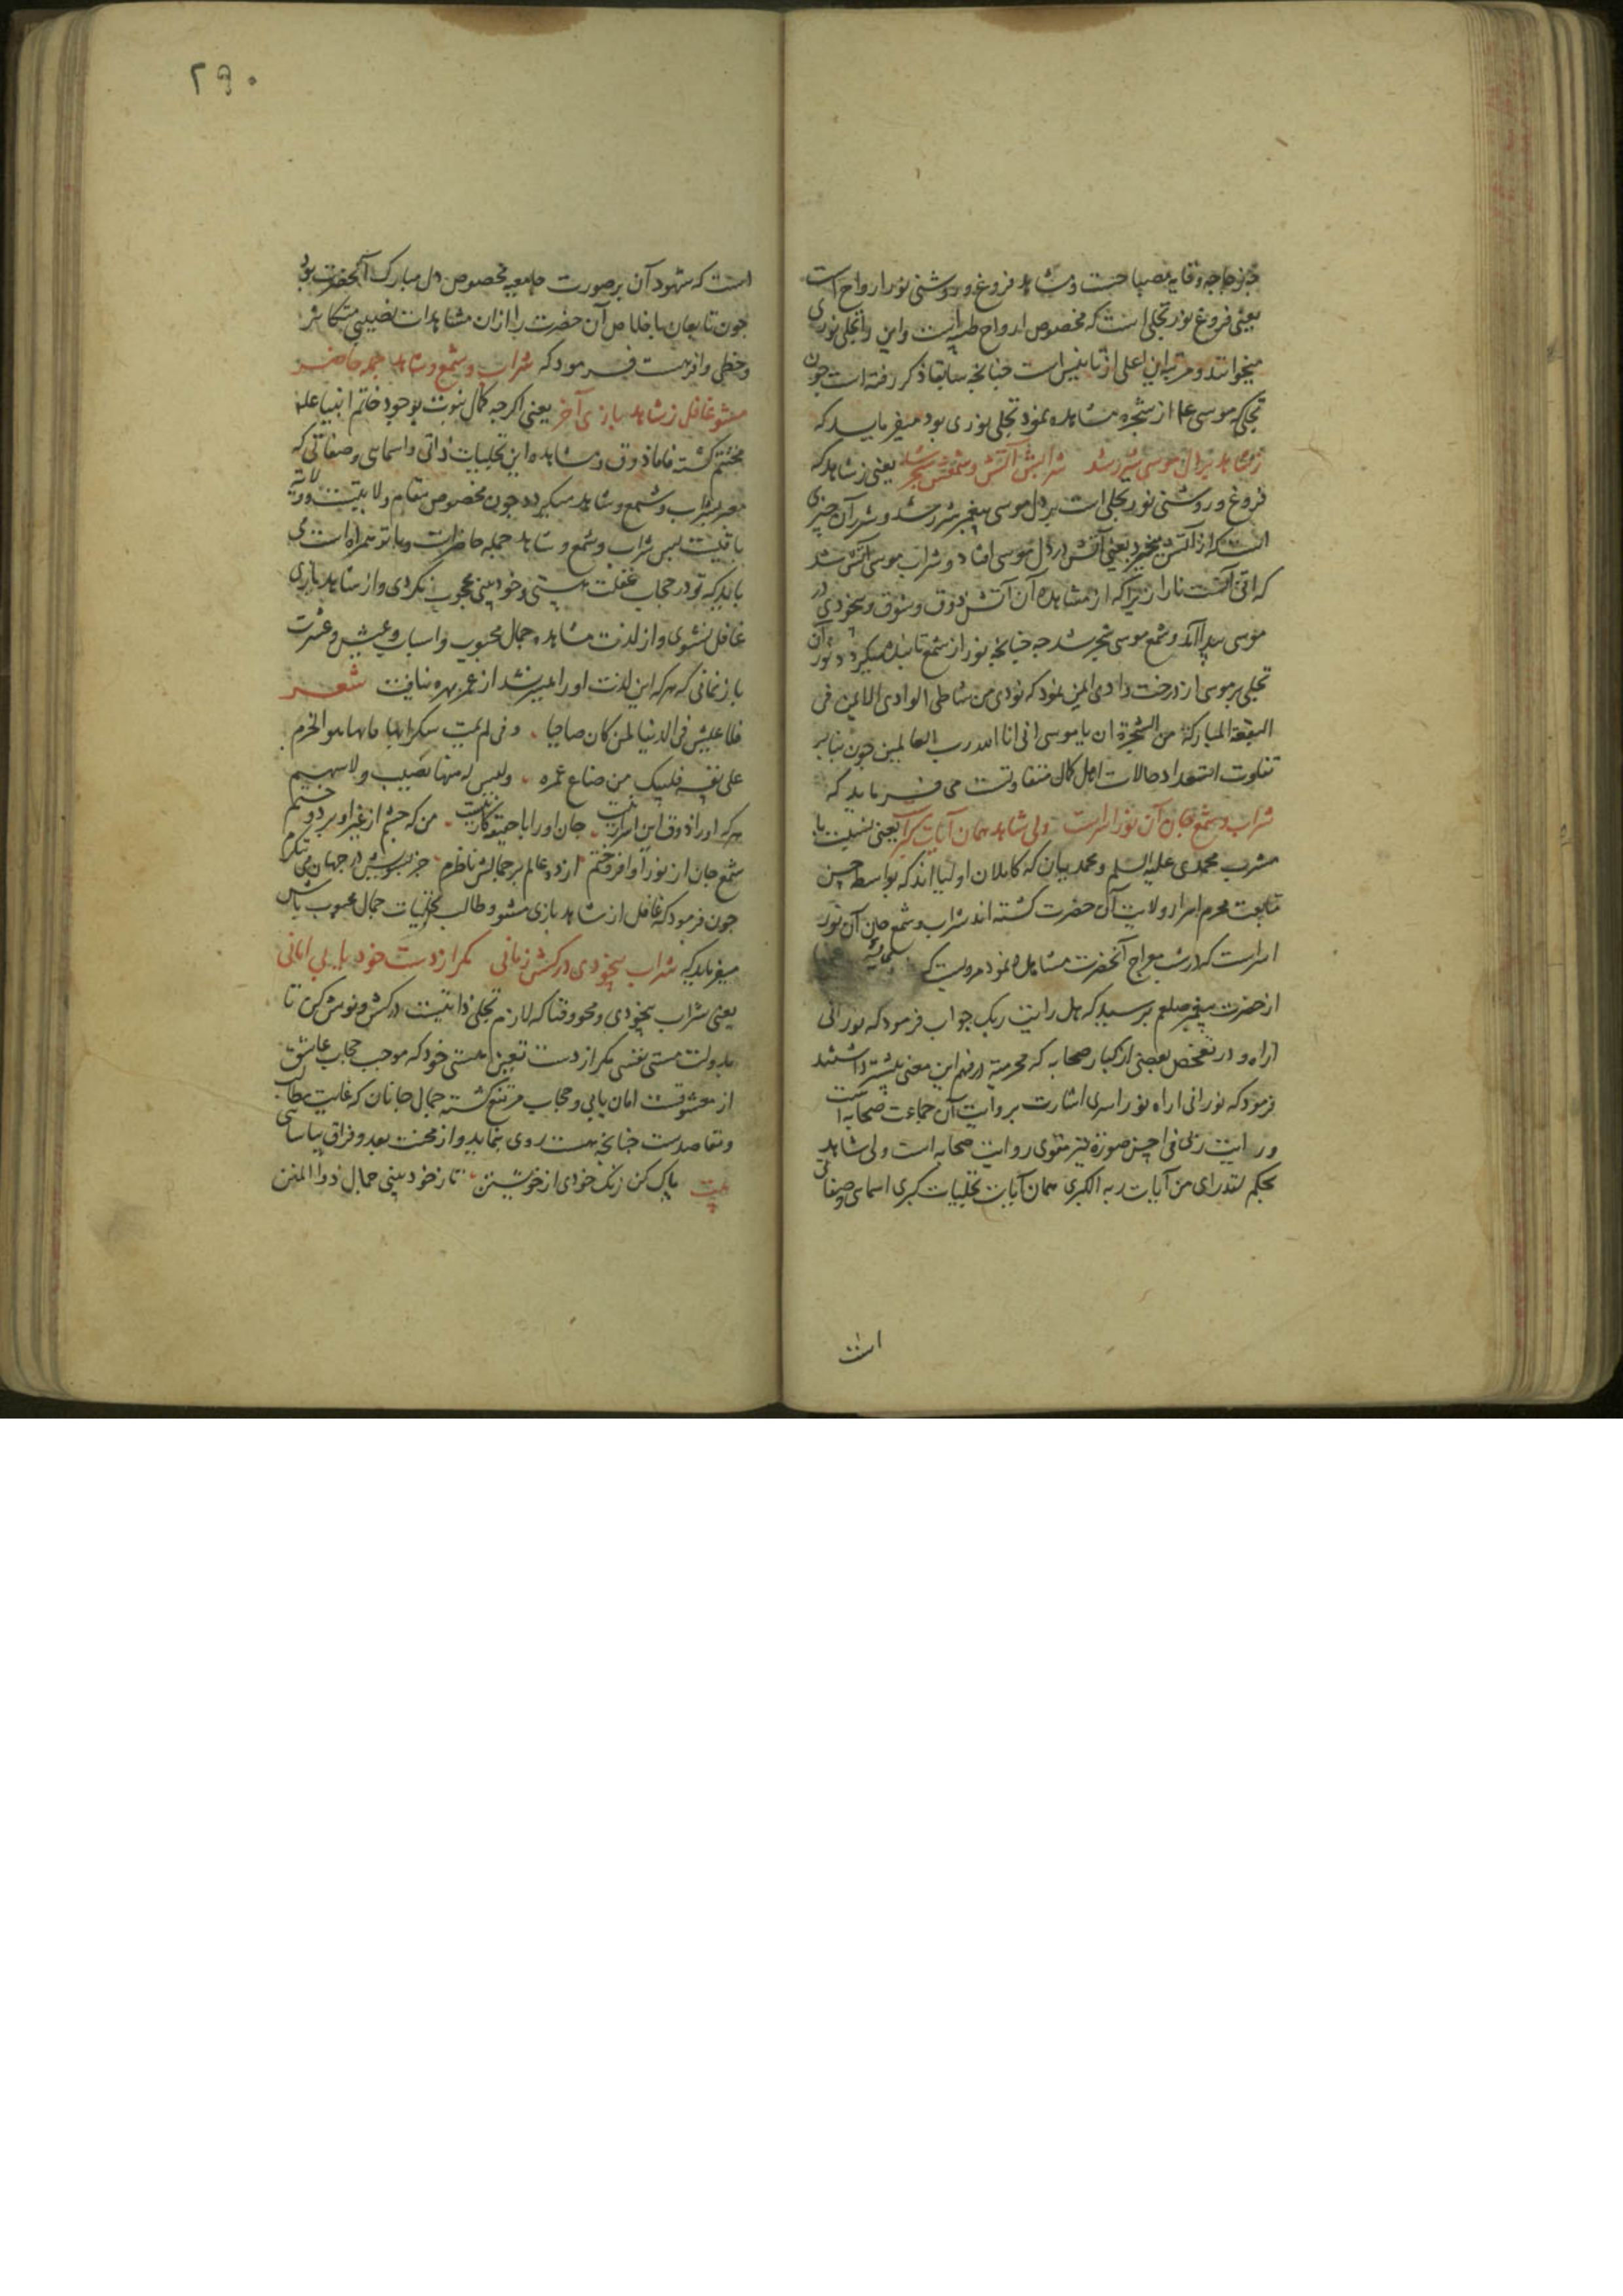 جز زجاجه وقایه مصباحست و شاهد فروغ و روشنی نور ارواح است
یعنی فروغ نور تجلی است که مخصوص ارواح طیبه است و این را تجلی نوری
میخوانند و مرتبه این اعلی از تانیس است چنانچه سابقا ذکر رفته است چون
تجلی که موسی ع از شجره مشاهده نمود تجلی نوری بود میفرماید که
ز شاهد بر دل موسی شرر شد شرابش آتش و شمعش شجر شد یعنی ز شاهد که
فروغ و روشنی نور تجلی است بر دل موسی پیغمبر شرر شد و شرر آن چیزی
است که از آتش میخیزد یعنی آتش در دل موسی افتاد و شراب موسی آتش شد
که انی آنست نارا زیرا که از مشاهده آن آتش ذوق و شوق و بیخودی در
موسی پیدا آمد و شمع موسی شجر شد چه چنانچه نور از شمع تابنده میگردد نور آن
تجلی بر موسی از درخت وادی ایمن نمود که نودی من شاطی الوادی الایمن فی
البقعة المبارکة من الشجرة ان یا موسی انی انا الله رب العالمین چون بنا بر
تفاوت استعداد حالات اهل کمال متفاوتست می فرماید که
شراب و شمع جان آن نور اسراست ولی شاهد همان آیات کبراست یعنی نسبت با
مشرب محمدی علیه السلم و محمدییان که کاملان اولیااند که بواسطه حسن
متابعت محرم اسرار ولایت آن حضرت گشته اند شراب و شمع جان آن نور
اسراست که در شب معراج آنحضرت مشاهده نمود مرویست که
از حضرت پیغمبر صلعم پرسید که هل رایت ربک جواب فرمود که نورانی
اراه و در تفحص بعضی از کبار صحابه که محرمیة در فهم این معنی بیشتر داشتند
فرمود که نورانی اراه نور اسری اشارت بروایت آن جماعت صحابه است
و رایت ربی فی احسن صورة نیز مقوی روایت صحابه است ولی شاهد
بحکم لقد رای من آیات ربه الکبری همان آیات تجلیات کبری اسمایی و صفاتی
است
۲۹۰
است که شهود آن بر صورت جامعیه مخصوص دل مبارک آنحضرت بود
چون تابعان با خلاص آن حضرت را ازان مشاهدات نصیبی متکاثر
و حظی وافر هست فرمود که شراب و شمع و شاهد جمله حاضر
مشو غافل ز شاهد بازی آخر یعنی اگرچه کمال نبوت بوجود خاتم انبیا علم
مختتم گشته فاما ذوق و مشاهده این تجلیات ذاتی و اسمایی و صفاتی که
معبر بشراب و شمع و شاهد میگردد چون مخصوص مقام ولایتست و ولایة
باقیست پس شراب و شمع و شاهد جمله حاضرست و با تو همراه است می
باید که تو در حجاب غفلت هستی و خودبینی محجوب نگردی و از شاهد بازی
غافل نشوی و از لذت مشاهده جمال محبوب و اسباب عیش و عشرت
باز نمانی که هر که این لذت او را میسر نشد از عمر بهره نیافت شعر
فلا عیش فی الدنیا لمن کان صاحیا و من لم یمت سکرا بها فاته الحزم
علی نفسه فلیبک من ضاع عمره ولیس له منها نصیب ولا سهم
هر که او را ذوق این اسرار نیست جان او را با حقیقت کار نیست من که چشم از غیر او بردوختم
شمع جان از نور او افروختم از دو عالم بر جمالش ناظرم جز برویش در جهان می ننگرم
چون فرمود که غافل از شاهد بازی مشو و طالب تجلیات جمال محبوب باش
میفرماید که شراب بیخودی درکش زمانی مگر از دست خود یابی امانی
یعنی شراب بیخودی و محو و فنا که لازم تجلی ذاتیست درکش و نوش کن تا
بدولت مستی نفسی مگر از دست تعین هستی خود که موجب حجاب عاشق
از معشوقست امان یابی و حجاب مرتفع گشته جمال جانان که غایت مطالب
و مقاصدست چنانچه هست روی بنماید و از محنت بعد و فراق بیاسایی
بیت پاک کن زنگ خودی از خویشتن تا ز خود بینی جمال ذوالمنن